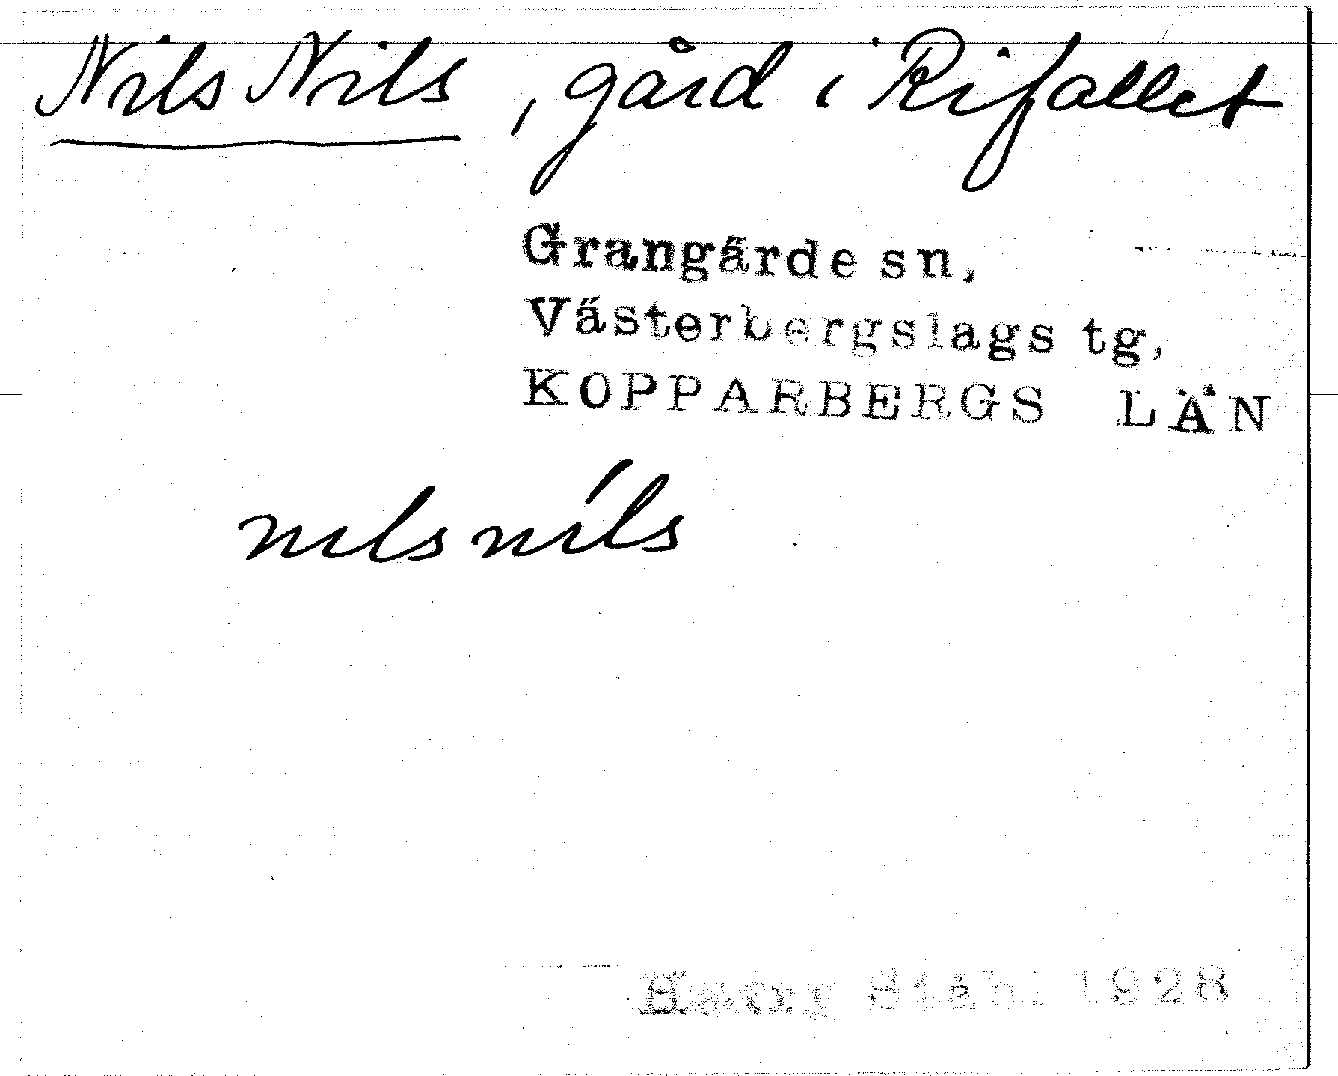 Nils Nils, gård i Rifallet
Grangärde sn,
Västerbergslags tg,
KOPPARBERGS LÄN
nils níls
Harry Ståhl 1928